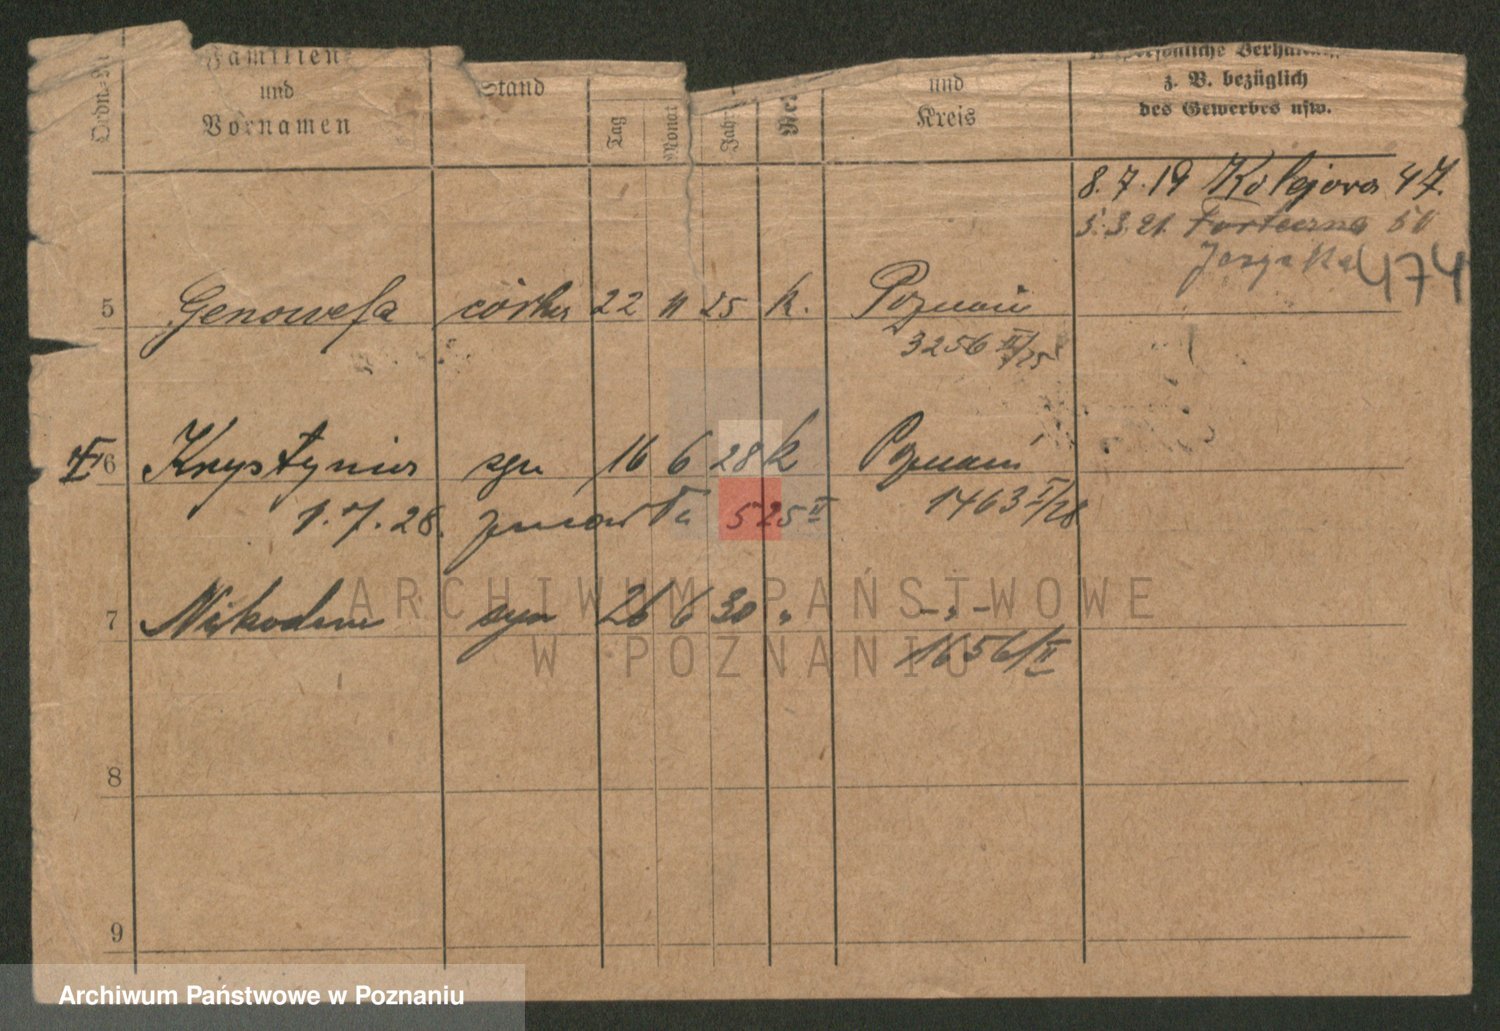 Ordn.-Nr
Familien-
und
Vornamen
Stand
Tag
Monat
Jahr
Rel
und
Kreis
persönliche Verhältn
z. B. bezüglich
des Gewerbes usw.
8.7.19 Kolejowa 47.
5.3.21. Forteczna 50
474
5 Genowefa córka 22 11 25 k. Poznań
3256 II/25
6 Krystyna 16 6 28 k Poznań
1.7.28. zmarła 525 II 1463 I/28
7 Nikodem syn 26 6 30 " -"-
1656/II
8
9
ARCHIWUM PAŃSTWOWE
W POZNANIU
Archiwum Państwowe w Poznaniu